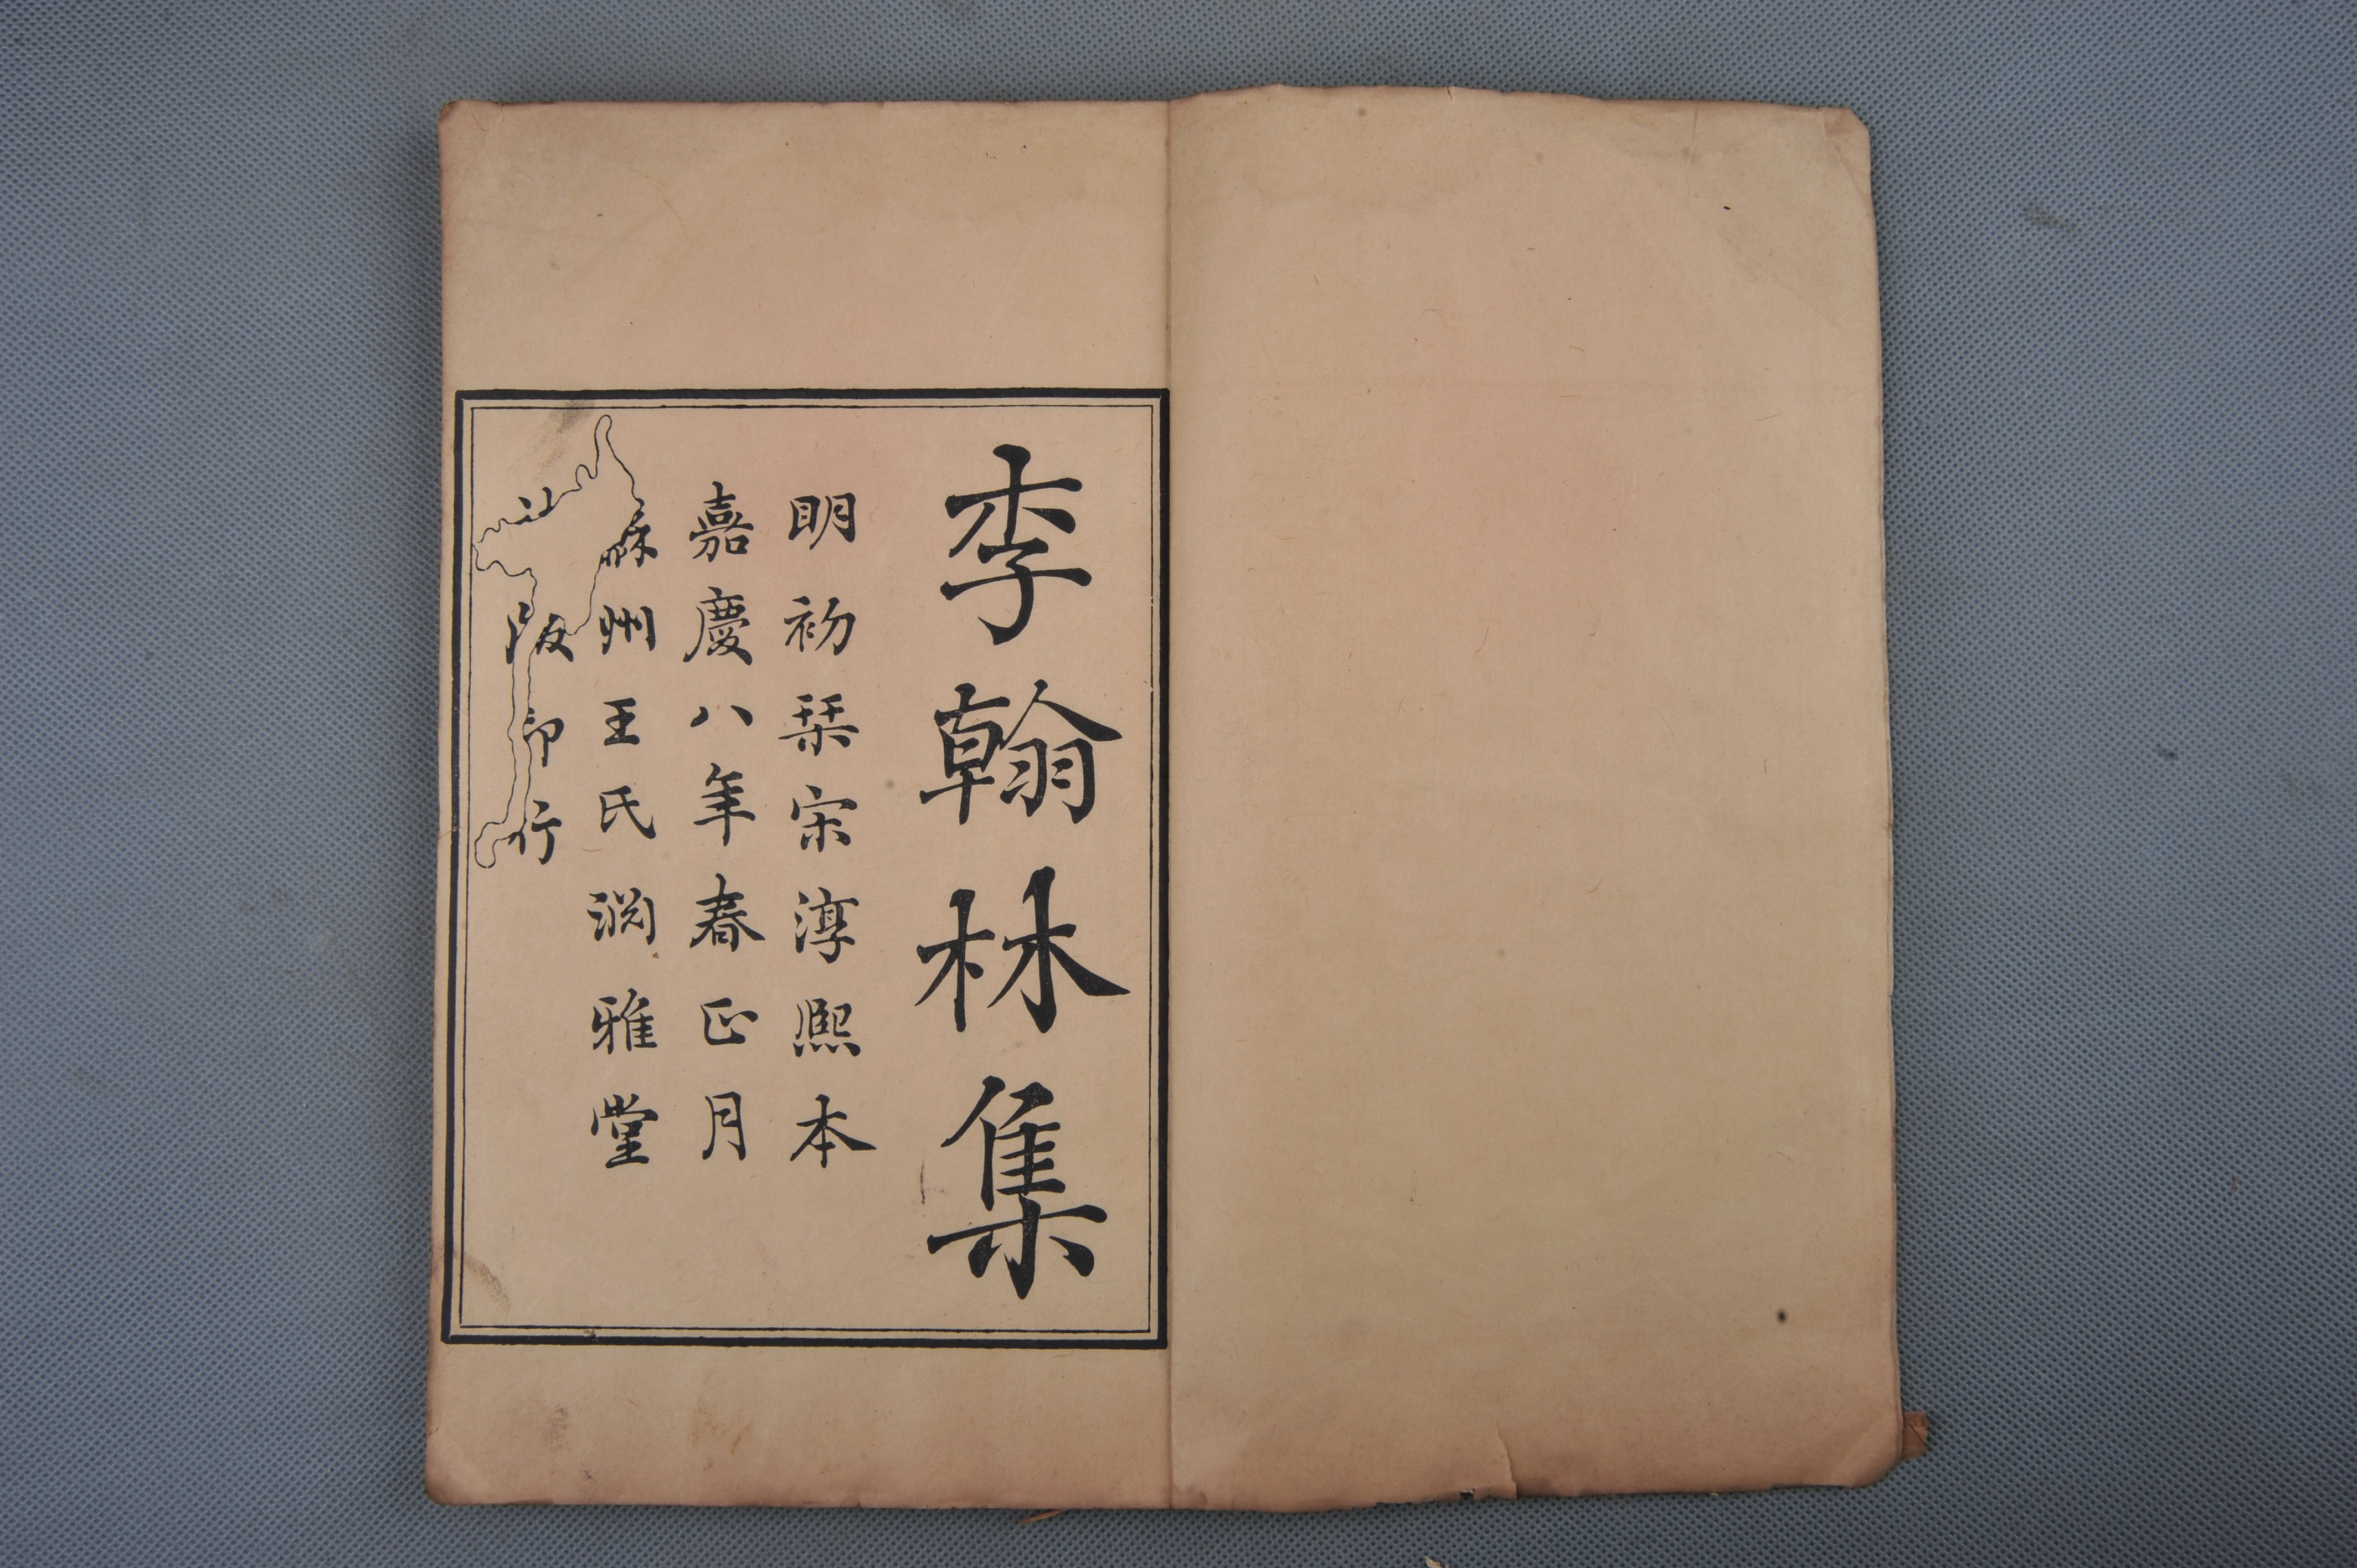 李翰林集
明初栞宋淳熙本
嘉慶八年春正月
蘇州王氏淵雅堂
阪印行